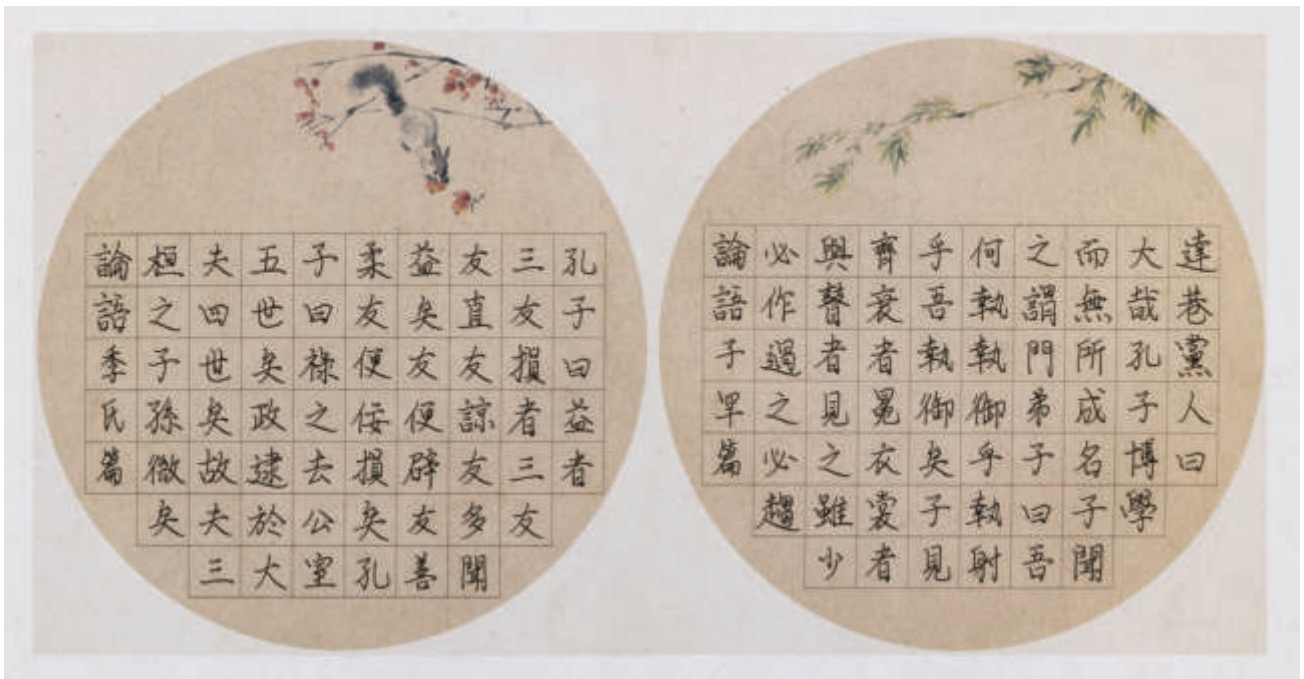 達巷黨人曰
大哉孔子博學
而無所成名子聞
之謂門弟子曰吾
何執執御乎執射
乎吾執御矣子見
齊衰者冕衣裳者
與瞽者見之雖少
必作過之必趨
論語子罕篇
孔子曰益者
三友損者三友
友直友諒友多聞
益矣友便辟友善
柔友便佞損矣孔
子曰祿之去公室
五世矣政逮於大
夫四世矣故夫三
桓之子孫微矣
論語季氏篇